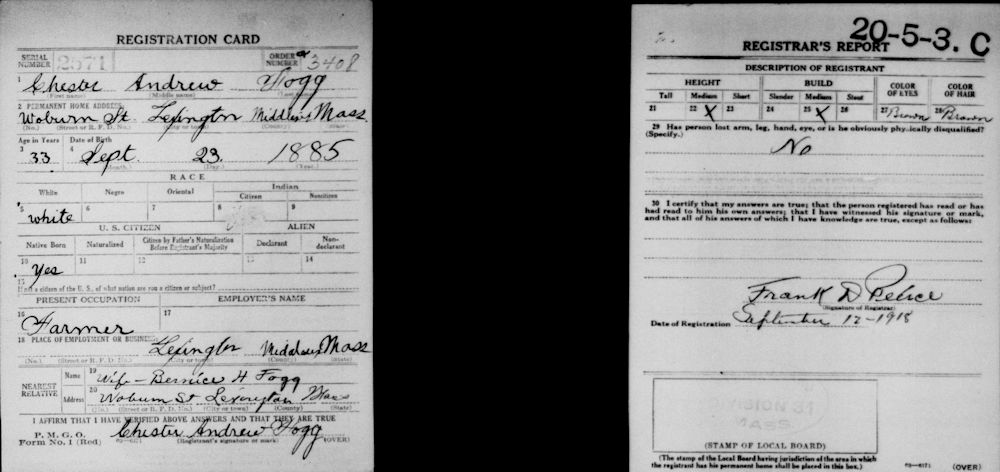 REGISTRATION CARD
SERIAL NUMBER 2571 ORDER NUMBER 3408
1 Chester Andrew Fogg
(First name) (Middle name) (Last name)
2 PERMANENT HOME ADDRESS:
Woburn St. Lexington Middlesex Mass
(No.) (Street or R. F. D. No.) (City or town) (County) (State)
Age in Years Date of Birth
3 33 4 Sept. 23 1885
(Month.) (Day.) (Year.)
RACE
White Negro Oriental Indian
Citizen Noncitizen
5 white 6 7 8 9
U. S. CITIZEN ALIEN
Native Born Naturalized Citizen by Father's Naturalization Before Registrant's Majority Declarant Non-declarant
10 Yes 11 12 13 14
15
If not a citizen of the U. S., of what nation are you a citizen or subject?
PRESENT OCCUPATION EMPLOYER'S NAME
16 Farmer 17
18 PLACE OF EMPLOYMENT OR BUSINESS:
Lexington Middlesex Mass
(No.) (Street or R. F. D. No.) (City or town) (County) (State)
NEAREST RELATIVE Name 19 Wife - Bernice H Fogg
Address 20 Woburn St Lexington Mass
(No.) (Street or R. F. D. No.) (City or town) (County) (State)
I AFFIRM THAT I HAVE VERIFIED ABOVE ANSWERS AND THAT THEY ARE TRUE
P. M. G. O.
Form No. 1 (Red) Chester Andrew Fogg
(Registrant's signature or mark) (OVER)
20-5-3. C
REGISTRAR'S REPORT
DESCRIPTION OF REGISTRANT
HEIGHT BUILD COLOR OF EYES COLOR OF HAIR
Tall Medium Short Slender Medium Stout
21 22 X 23 24 25 X 26 27 Brown 28 Brown
29 Has person lost arm, leg, hand, eye, or is he obviously physically disqualified?
(Specify.)
No
30 I certify that my answers are true; that the person registered has read or has
had read to him his own answers; that I have witnessed his signature or mark,
and that all of his answers of which I have knowledge are true, except as follows:
Frank D Peirce
(Signature of Registrar)
Date of Registration September 12-1918
DIVISION 31
MASS
(STAMP OF LOCAL BOARD)
(The stamp of the Local Board having jurisdiction of the area in which
the registrant has his permanent home shall be placed in this box.)
03-6171 (OVER)